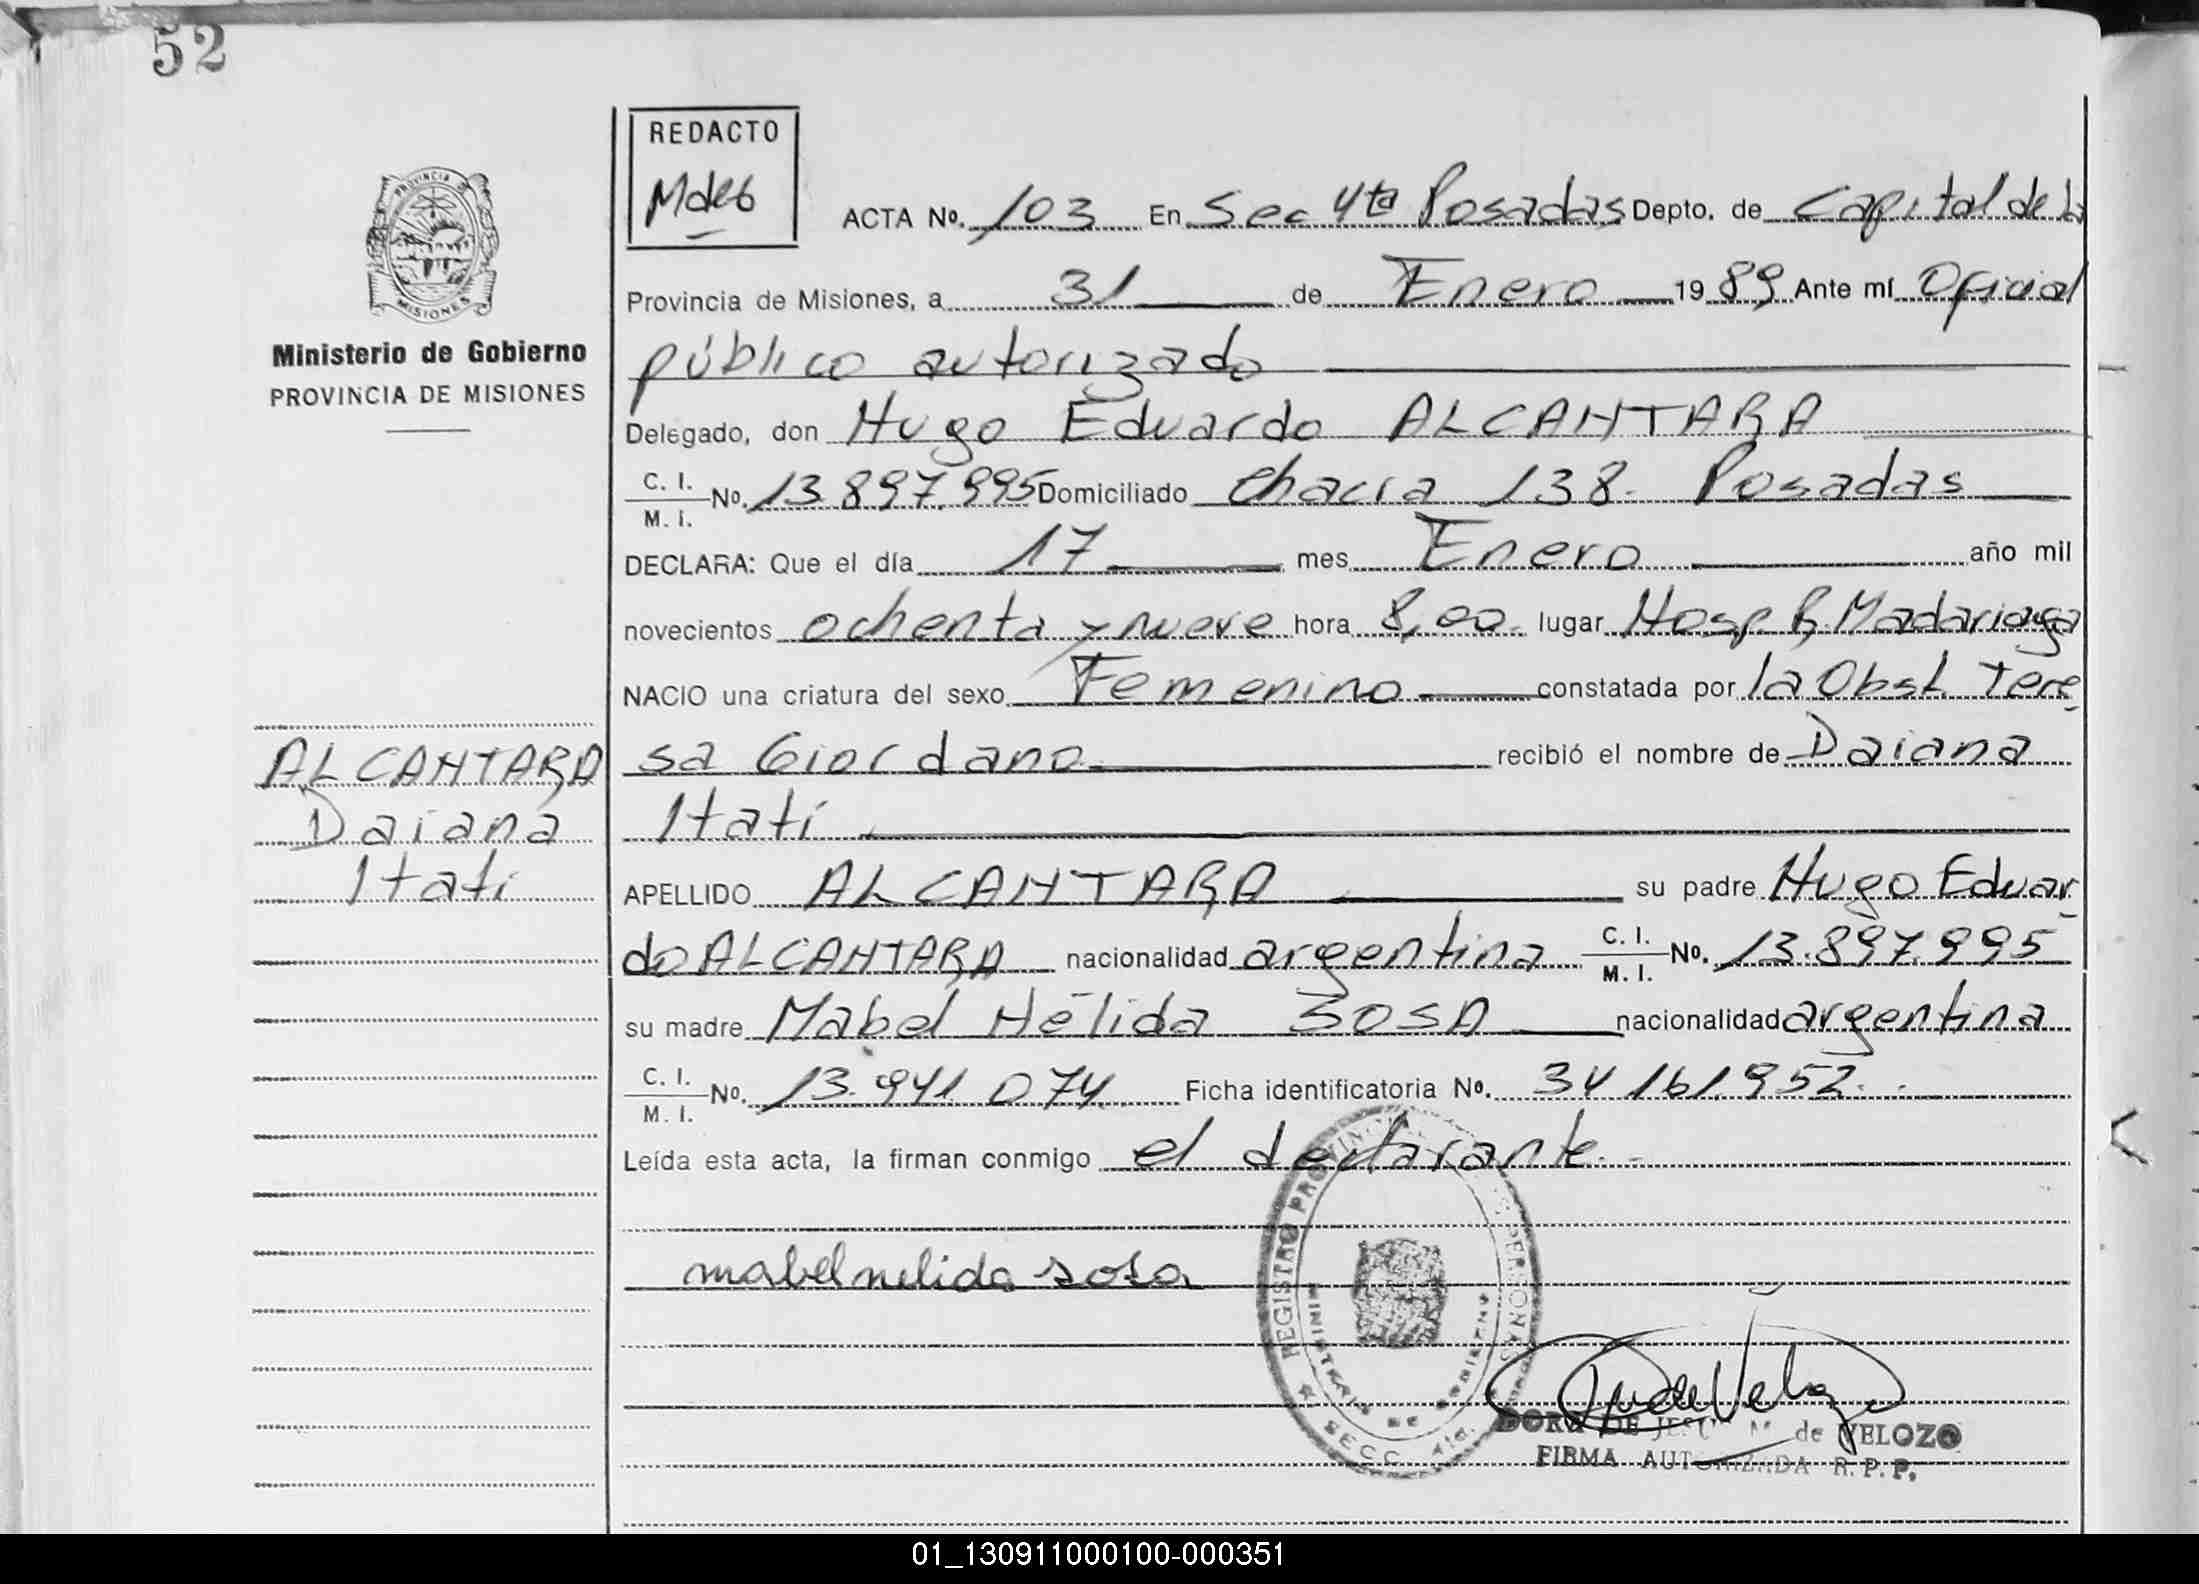 52
REDACTO
Mdeb
PROVINCIA DE
MISIONES
Ministerio de Gobierno
PROVINCIA DE MISIONES
ACTA No. 103 En Sec 4ta Posadas Depto. de Capital de la
Provincia de Misiones, a 31 de Enero 1989 Ante mí Oficial
público autorizado
Delegado, don Hugo Eduardo ALCANTARA
C. I.
M. I. No. 13.897.995 Domiciliado Chacra 138. Posadas
DECLARA: Que el día 17 mes Enero año mil
novecientos ochenta y nueve hora 8,00. lugar Hosp. R. Madariaga
NACIO una criatura del sexo Femenino constatada por la Obst. Tere
sa Giordano recibió el nombre de Daiana
Itatí
APELLIDO ALCANTARA su padre Hugo Eduar
do ALCANTARA nacionalidad argentina C. I.
M. I. No. 13.897.995
su madre Mabel Nélida SOSA nacionalidad argentina
C. I.
M. I. No. 13.941.074. Ficha identificatoria No. 34161.952.
Leída esta acta, la firman conmigo el declarante.
ALCANTARA
Daiana
Itatí
mabel nelida sosa
REGISTRO PROVINCIAL DE LAS PERSONAS
MINISTERIO DE GOBIERNO
SECC. 4ta.
DORA DE JESUS M. de VELOZO
FIRMA AUTORIZADA R. P. P.
01_130911000100-000351